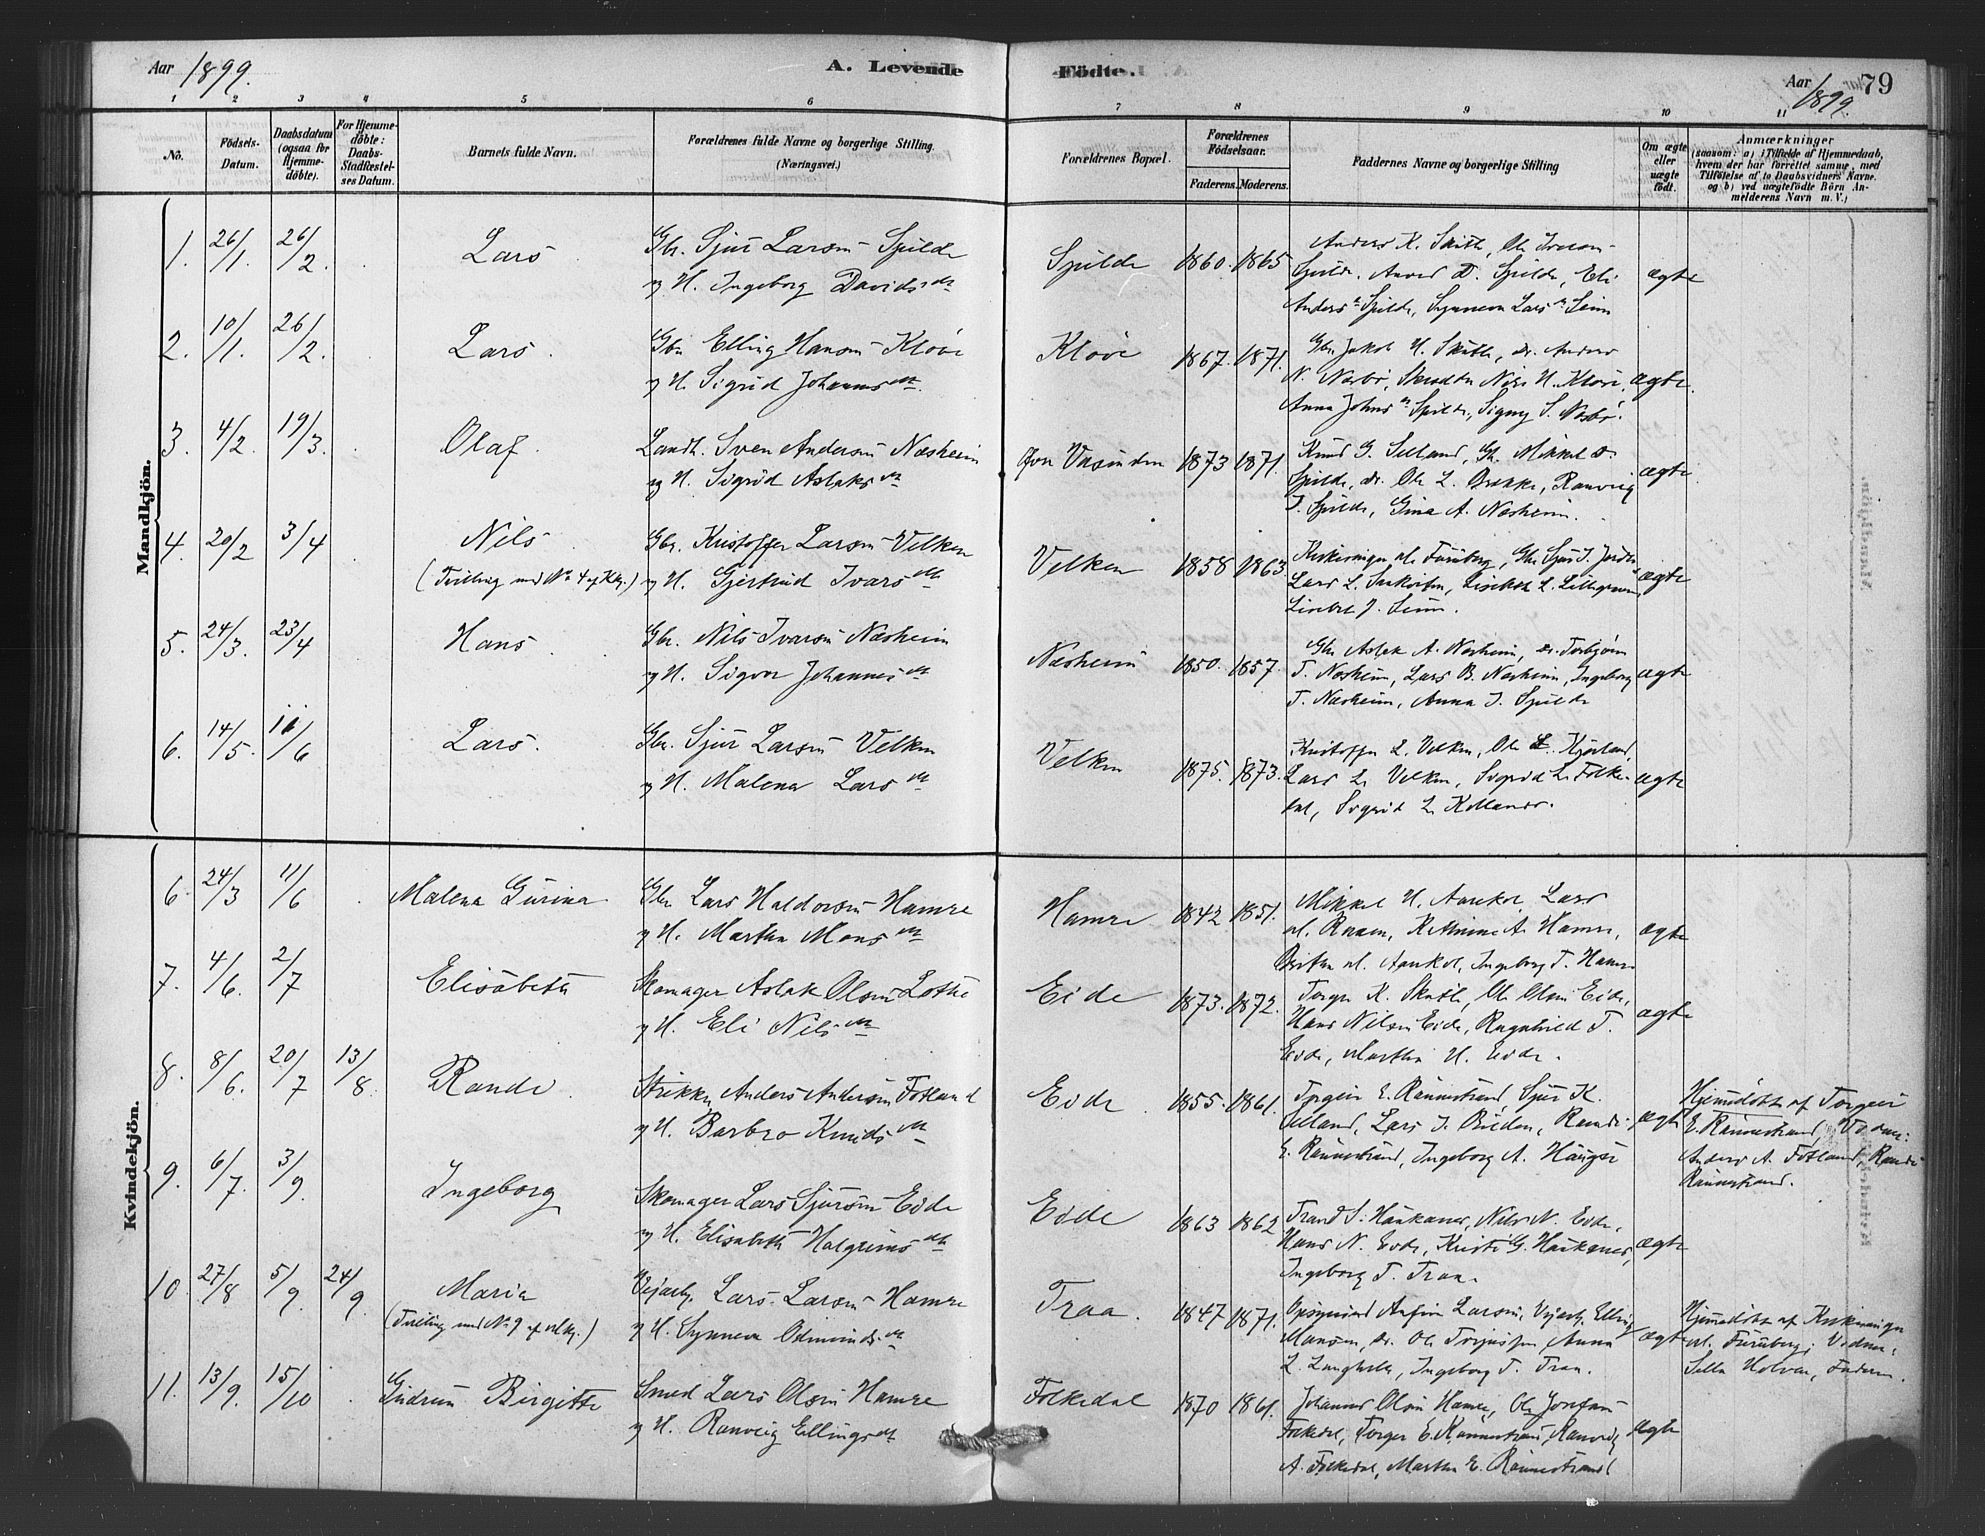 Aar 1899.
A. Levende
Födte.
Aar 1899.
79
1 2 3 4 5 6 7 8 9 10 11
No.
Födsels-Datum.
Daabsdatum (ogsaa for Hjemmedöbte).
For Hjemmedöbte: Daabs-Stadfæstelses Datum.
Barnets fulde Navn.
Forældrenes fulde Navne og borgerlige Stilling. (Næringsvei.)
Forældrenes Bopæl.
Forældrenes Födselsaar.
Faderens. Moderens.
Faddernes Navne og borgerlige Stilling
Om ægte eller uægte födt.
Anmærkninger
(saasom: a) i Tilfælde af Hjemmedaab, hvem der har forrettet samme, med Tilföielse af to Daabsvidners Navne. og b) ved uægtefödte Börn Anmelderens Navn m. V.)
Mandkjön.
1. 26/1. 26/2. Lars Gbr. Sjur Larsen Spilde
og H. Ingeborg Davidsdtr
Spilde 1860. 1865
Anders K. Skutle, Ole
Spilde, D. Spilde, Eli
Anders Spilde, Synneva Lars Seim
ægte
2. 10/1. 26/2. Lars. Gbr. Elling Hansen Kløve
og H. Sigrid Johannesdtr.
Kløve 1867. 1871.
Gbr. Jakob H. Skutle, do. Anders
N. Nesbø, Nils H. Kløve,
Anna Johns Spilde, Signy S. Nesbø.
ægte.
3. 4/2. 19/3. Olaf. Landh. Sven Andersen Næsheim
og H. Sigrid Aslaksdtr
1873 1871.
Knud G. Selland, Gbr. Mikkel
Spilde, do. Ole L. Brekke, Ranveig
J. Spilde, Gina A. Næsheim.
ægte.
4. 20/2 3/4 Nils
(Tvilling med No 4 af Kkj.)
Gbr. Kristoffer Larsen Velken
og H. Gjertrud Ivarsdtr
Velken 1858 1863.
Kirkesanger M. Furuberg, Gbr. Sjur
Lars L. Lisebet L. Lillegraven
J. Seim.
ægte
5. 24/3. 23/4 Hans Gbr. Nils Ivarsen Næsheim
og H. Sigvor Johannesdtr
Næsheim 1850. 1857.
Gbr Aslak A. Næsheim, do. Torbjørn
T. Næsheim, Lars B. Næsheim, Ingeborg
T. Næsheim, Anna J. Spilde
ægte
6. 14/5. 11/6 Lars. Gbr. Sjur Larsen Velken
og H. Malena Larsdtr
Velken 1875. 1873.
Kristoffer L. Velken, Ole Kjerland,
Lars L. Velken, Sigrid L. Folke-
dal, Sigrid L. Kollanes.
ægte
Kvindekjön.
6. 24/3 11/6 Malena Gurina Gbr Lars Haldorsen Hamre
og H. Martha Monsdtr
Hamre 1842 1851.
Mikkel H. Aarekol Lars
M. Raaen, A. Hamre,
Ingeborg T. Hamre
ægte
7. 4/6. 2/7 Elisabeth Skomager Aslak Olsen Lothe
og H. Eli Nilsdtr
Eide 1873. 1872.
Torger K. Skutle, Ole Olsen Eide,
Hans Nilsen Eide, Ragnhild T.
Eide, Martha H. Eide.
ægte
8. 8/6. 20/7 13/8. Randi. Anders Andersen Fotland
og H. Barbro Knudsdtr
Eide 1855. 1861.
Torgeir E. Rønnestrand, Sjur K.
Selland, Lars J. Randi
E. Rønnestrand, Ingeborg A. Hauger
ægte
Hjemmedøbt af Torgeir
E. Rønnestrand, Vidner:
Anders A. Fotland, Randi
Rønnestrand.
9. 6/7. 3/9. Ingeborg Skomager Lars Sjursen Eide
og H. Elisabeth Halgrimsdtr
Eide 1863 1862
Trond S. Haukanes, Nils N. Eide,
Hans N. Eide, Kristi G. Haukanes,
Ingeborg T. Traa.
ægte
10. 27/8 5/9. 24/9. Maria
(Tvilling med No 9 af Mkj.)
Vejarb. Lars Larsen Hamre
og H. Synneva Odmundsdtr
Traa. 1847 1871.
Opsynsmand Anfin Larsen, Vejarb. Elling
Hansen, do. Ole Anna
L. Langhelle, Ingeborg T. Traa.
ægte
Hjemmedøbt af Kirkesanger
M. Furuberg; Vidner:
Faderen.
11. 13/9. 15/10 Gudrun Birgitte Smed Lars Olsen Hamre
og H. Ranveig Ellingsdtr
Folkedal 1870 1861.
Johannes Olsen Hamre, Ole Josefsen
Folkedal, Torger E. Rønnestrand, Ranveig
A. Folkedal, Martha E. Rønnestrand
ægte